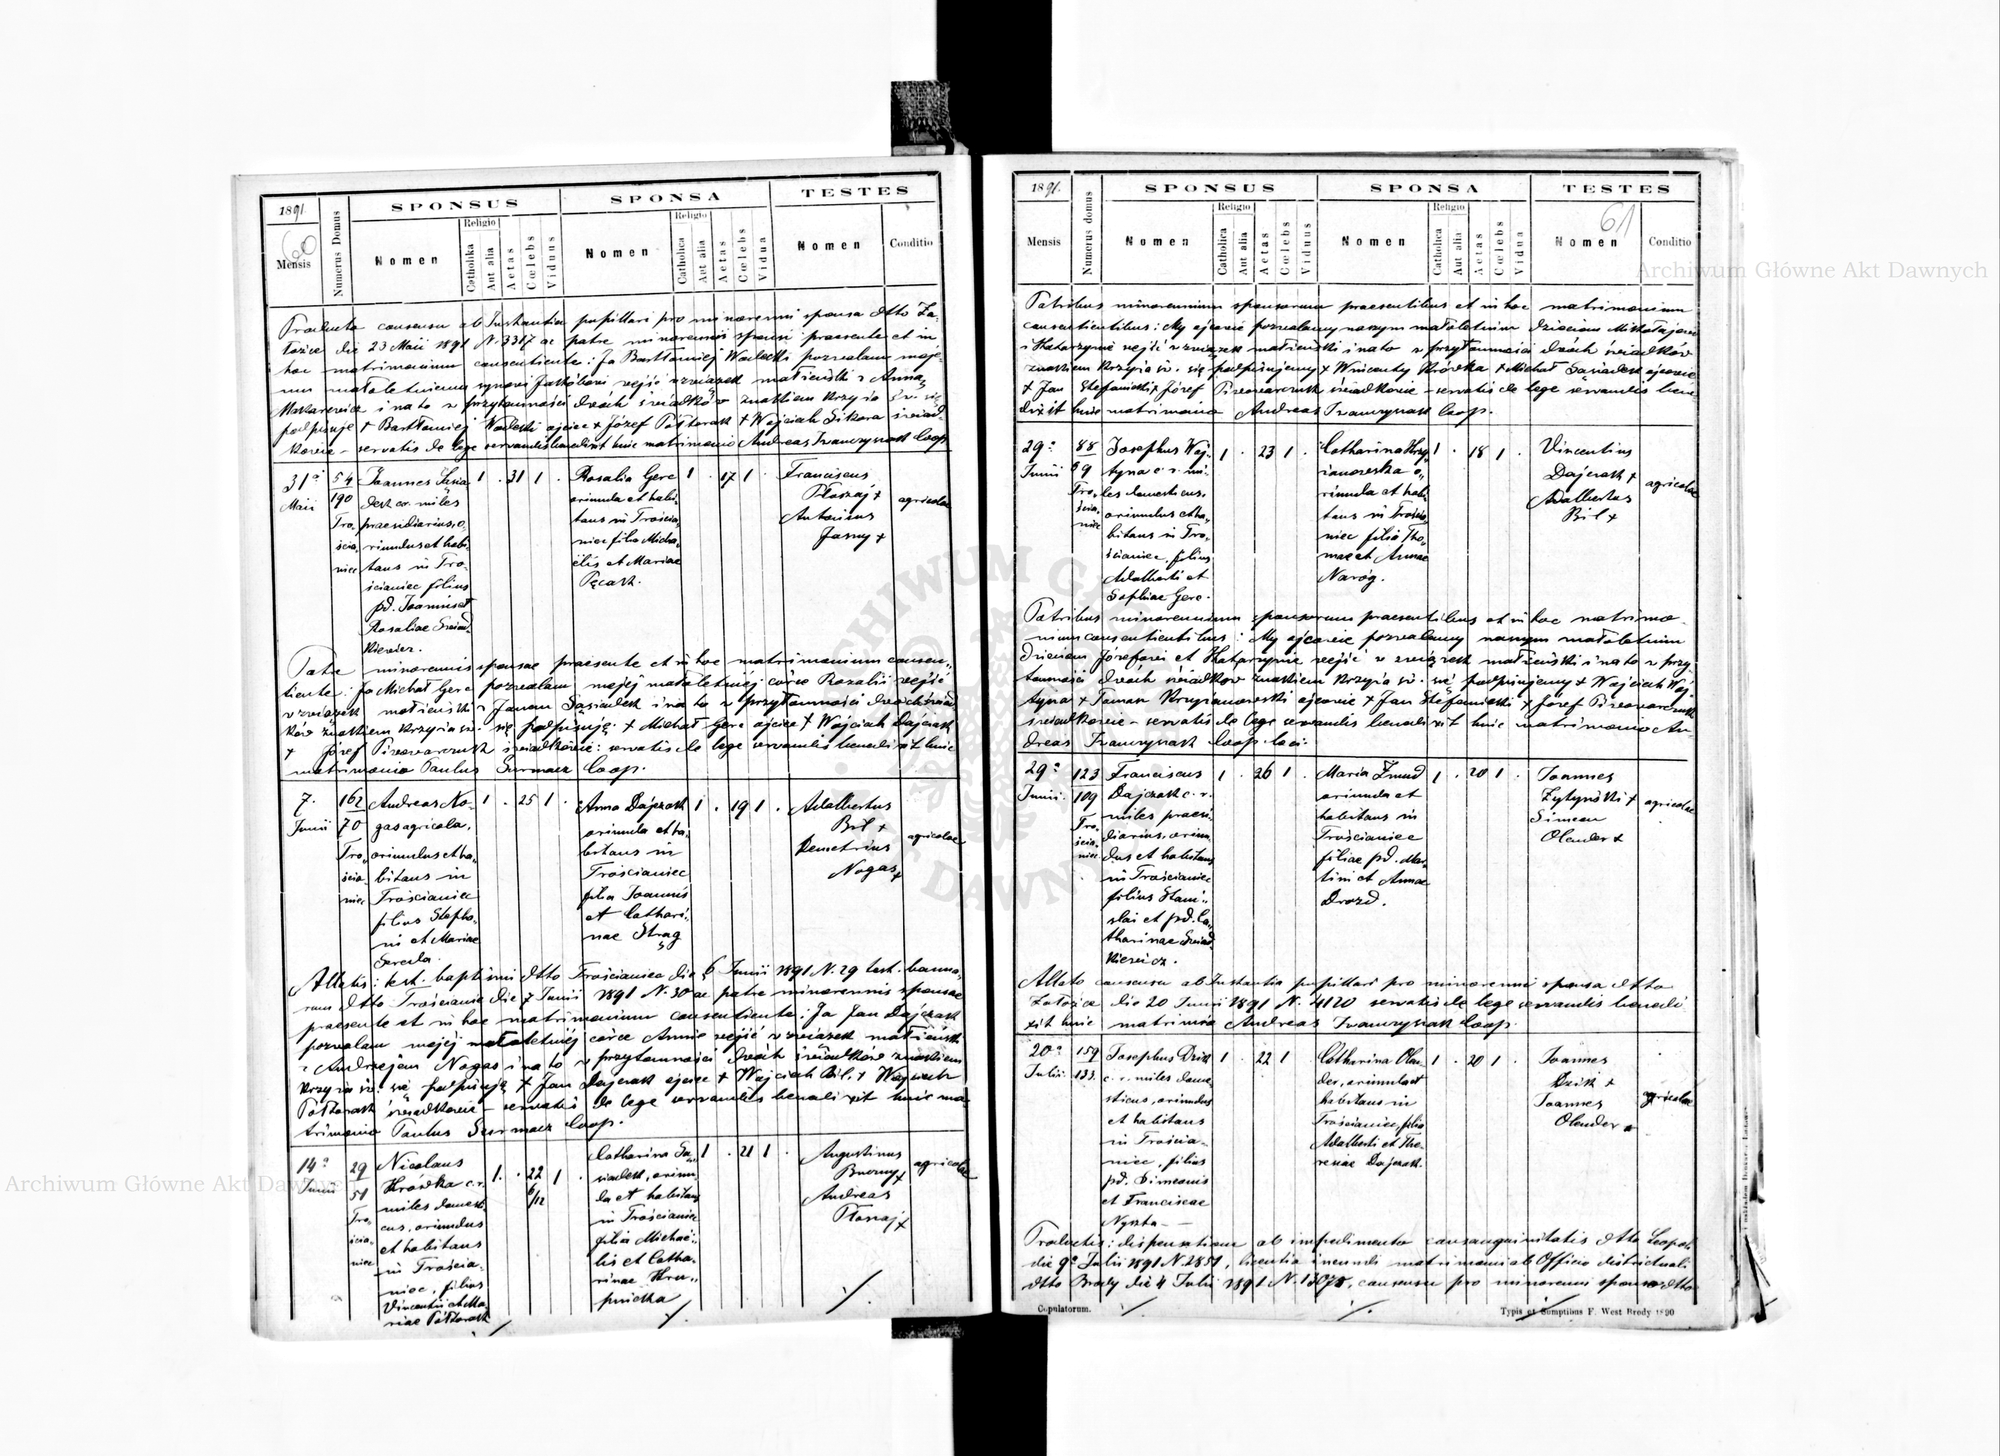 1891
60
SPONSUS
SPONSA
TESTES
Mensis
Numerus Domus
Nomen
Religio
Catholika
Aut alia
Aetas
Cœlebs
Viduus
Nomen
Religio
Catholica
Aut alia
Aetas
Cœlebs
Vidua
Nomen
Conditio
Producto consensu ab Instantia pupillari pro minorenni sponsa dtto Za-
łoźce die 23 Maii 1891 N. 3317 ac patre minorennis sponsi praesente et in
hoc matrimonium consentiente: Ja Bartłomiej Wadecki pozwalam moje-
mu małoletniemu synowi Jakóbowi wejść w związek małżeński z Anną
Makarewicz i na to w przytomności dwóch świadków znakiem krzyża św. się
podpisuję + Bartłomiej Wadecki ojciec + Józef Półtorak + Wojciech Sikora świad-
kowie – servatis de lege servandis benedixit huic matrimonio Andreas Iwanczynak Coop.
31a
Maii
54
190
Tro-
ścia-
niec
Joannes Sasia-
dek cr. miles
praesidiarius, o-
riundus et habi-
tans in Tro-
ścianiec filius
pd. Joannis et
Rosaliae Świad-
kiewicz.
1 . 31 1
Rosalia Gerc
oriunda et habi-
tans in Trościa-
niec filia Micha-
elis et Mariae
Pęcak.
1 . 17 1 .
Franciscus
Płaszaj +
Antonius
Jasny +
agricolae
Patre minorennis sponsae praesente et in hoc matrimonium consen-
tiente: Ja Michał Gerc pozwalam mojej małoletniej córce Rozalii wejść
w związek małżeński z Janem Sasiadek i na to w przytomności dwóch świad-
ków znakiem krzyża św. się podpisuję + Michał Gerc ojciec + Wojciech Dajczak
+ Józef Piwowarczuk świadkowie: servatis de lege servandis benedixit huic
matrimonio Paulus Surmacz Coop.
7.
Junii
162
70
Tro-
ścia-
niec
Andreas No-
gas agricola,
oriundus et ha-
bitans in
Trościaniec
filius Stepha-
ni et Mariae
1 . 25 1 .
Anna Dajczak
oriunda et ha-
bitans in
Trościaniec
filia Joannis
et Cathari-
nae Strąg
1 . 19 1 .
Adalbertus
Bil +
Demetrius
Nogas +
agricolae
Allatis: test. baptismi dtto Trościaniec die 6 Junii 1891 N. 29 test. banno-
rum dtto Trościaniec die 7 Junii 1891 N. 30 ac patre minorennis sponsae
praesente et in hoc matrimonium consentiente: Ja Jan Dajczak
pozwalam mojej małoletniej córce Annie wejść w związek małżeński
z Andrzejem Nogas i na to w przytomności dwóch świadków znakiem
krzyża św. się podpisuję + Jan Dajczak ojciec + Wojciech Bil, + Wojciech
Półtorak świadkowie – servatis de lege servandis benedixit huic ma-
trimonio Paulus Surmacz Coop.
14a
Junii
29
51
Tro-
ścia-
niec
Nicolaus
Hrówka c.r.
miles domesti-
cus, oriundus
et habitans
in Trościa-
niec, filius
Vincentii et Ma-
riae Półtorak
1. . 22 1 .
6/12
Catharina Sa-
siadek, oriun-
da et habitans
in Trościaniec
filia Michae-
lis et Catha-
rinae Kru-
pnicka
1 . 21 1 .
Augustinus
+
Andreas
Płaszaj +
agricolae
1891.
61
SPONSUS
SPONSA
TESTES
Mensis
Numerus domus
Nomen
Religio
Catholica
Aut alia
Aetas
Cœlebs
Viduus
Nomen
Religio
Catholica
Aut alia
Aetas
Cœlebs
Vidua
Nomen
Conditio
Patribus minorennium sponsorum praesentibus et in hoc matrimonium
consentientibus: My ojcowie pozwalamy naszym małoletnim dzieciom Mikołajowi
i Katarzynie wejść w związek małżeński i na to w przytomności dwóch świadków
znakiem krzyża św. się podpisujemy + Wincenty Hrówka + Michał Sasiadek ojcowie
+ Jan Stefaniski + Józef Piwowarczuk świadkowie – servatis de lege servandis bene-
dixit huic matrimonio Andreas Iwanczynak Coop.
29a
Junii
88
59
Tro-
ścia-
niec
Josephus Woj-
tyna c. r. mi-
les domesticus,
oriundus et ha-
bitans in Tro-
ścianiec, filius
Adalberti et
Sophiae Gerc.
1 . 23 1 .
Catharina Krzy-
żanowska o-
riunda et habi-
tans in Trościa-
niec filia Tho-
mae et Annae
Naróg.
1 . 18 1 .
Vincentius
Dajczak +
Adalbertus
Bil +
agricolae
Patribus minorennium sponsorum praesentibus et in hoc matrimo-
nium consentientibus: My ojcowie pozwalamy naszym małoletnim
dzieciom Józefowi et Katarzynie wejść w związek małżeński i na to w przy-
tomności dwóch świadków znakiem krzyża św. się podpisujemy + Wojciech Woj-
tyna + Tomasz Krzyżanowski ojcowie + Jan Stefaniski + Józef Piwowarczuk
świadkowie – servatis de lege servandis benedixit huic matrimonio An-
dreas Iwanczynak Coop. loci.
29a
Junii.
123
109
Tro-
ścia-
niec
Franciscus
Dajczak c. r.
miles praesi-
diarius, oriun-
dus et habitans
in Trościaniec
filius Stani-
slai et pd. Ca-
tharinae Świad-
kiewicz.
1 . 26 1 .
Maria Żmud
oriunda et
habitans in
Trościaniec
filiae pd. Mar-
tini et Annae
Drozd.
1 . 20 1 .
Joannes
Żytyński +
Simeon
Olender +
agricolae
Allato consensu ab Instantia pupillari pro minorenni sponsa dtto
Załoźce die 20 Junii 1891 N. 4120 servatis de lege servandis benedi-
xit huic matrimonio Andreas Iwanczynak Coop.
20a
Julii.
159
133.
Josephus Dzik
c. r. miles dome-
sticus, oriundus
et habitans
in Trościa-
niec, filius
pd. Simeonis
et Franciscae
Nyzka – –
1 . 22 1 .
Catharina Olen-
der, oriunda et
habitans in
Trościaniec, filia
Adalberti et The-
resiae Dajczak.
1 . 20 1 .
Joannes
Dzik +
Joannes
Olender +
agricolae
Productis: dispensatione ab impedimento consanguinitatis dtto Leopoli
die 9a Julii 1891 N. 2851, licentia ineundi matrimonii ab Officio districtuali
dtto Brody die 4 Julii 1891 N. 13078, consensu pro minorenni sponso dtto
Copulatorum.
Typis et Sumptibus F. West Brody 1890
Archiwum Główne Akt Dawnych
Archiwum Główne Akt Dawnych